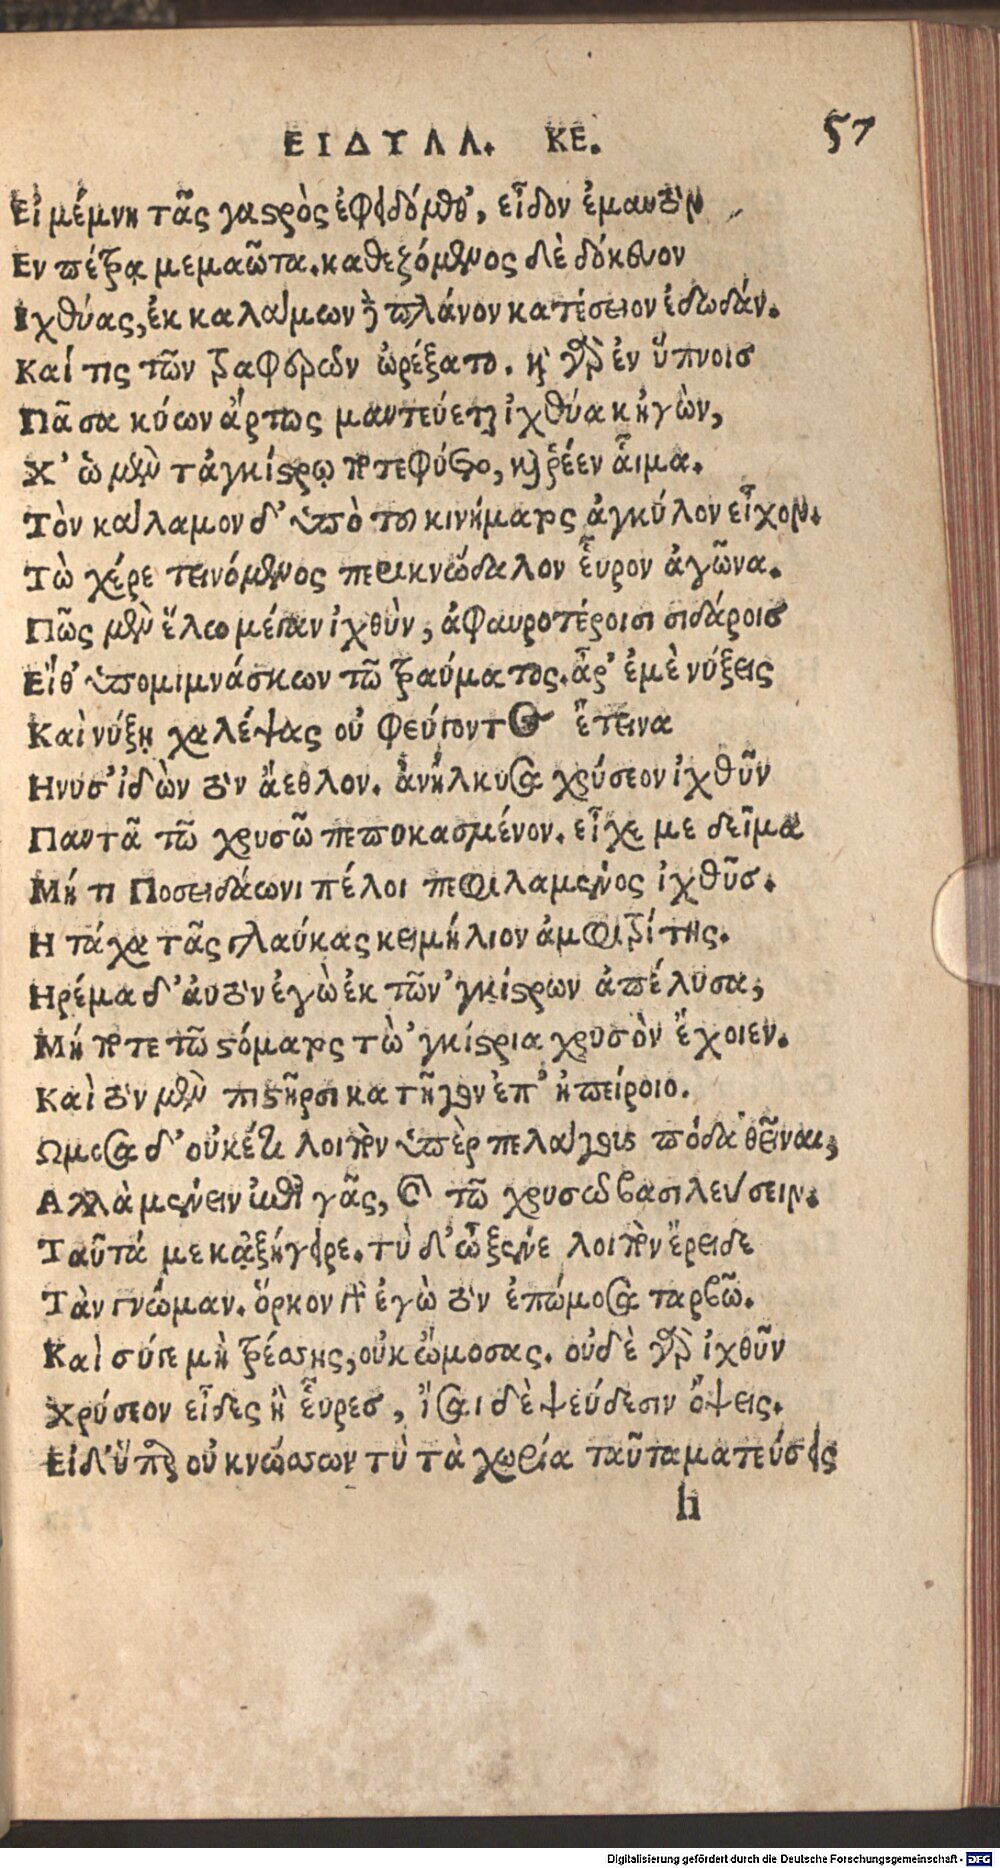 ΕΙΔΥΛΛ. ΚΕ. 57
Εἰ μέμνῃ τᾶς γαστρὸς ἐφειδόμεθ', εἶδον ἐμαυτὸν
Εν πέτρᾳ μεμαῶτα. καθεζόμενος δὲ δόκευον
Ιχθύας, ἐκ καλάμων δὲ πλάνον κατέσειον ἐδωδάν.
Καί τις τῶν τραφερῶν ὠρέξατο. καὶ γὰρ ἐν ὕπνοισ
Πᾶσα κύων ἄρτως μαντεύεται ἰχθύα κἠγὼν,
Χ' ὼ μὲν τἀγκίστρῳ ποτεφύετο, καὶ ῥέεν αἷμα.
Τὸν κάλαμον δ' ὑπὸ τοῦ κινήματος ἀγκύλον εἶχον.
Τὼ χέρε τεινόμενος περικνώδαλον εὗρον ἀγῶνα.
Πῶς μὲν ἕλω μέγαν ἰχθὺν, ἀφαυροτέροισι σιδάροισ
Εἴθ' ὑπομιμνάσκων τῶ τραύματος. ἆρ' ἐμὲ νύξεις
Καὶ νύξῃ χαλέψας οὐ φεύγοντος ἔτεινα
Ηνυσ' ἰδὼν τὸν ἄεθλον. ἀνήλκυσα χρύσεον ἰχθῦν
Παντᾶ τῶ χρυσῶ πεπυκασμένον. εἶχε με δεῖμα
Μή τι Ποσειδάωνι πέλοι πεφιλαμένος ἰχθῦσ.
Η τάχα τᾶς γλαύκας κειμήλιον ἀμφιτρίτης.
Ηρέμα δ' ἀυτὸν ἐγὼ ἐκ τῶν 'γκίστρων ἀπέλυσα,
Μή ποτε τῶ στόματος τὼ 'γκίστρια χρυσὸν ἔχοιεν.
Καὶ τὸν μὲν πιστῆρσι κατῆγον ἐπ' ἠπείροιο.
Ωμοσα δ' οὐκέτι λοιπὸν ὑπὲρ πελάγους πόδα θεῖναι,
Αλλὰ μένειν ἐπὶ γᾶς, καὶ τῶ χρυσῶ βασιλεύσειν.
Ταῦτά με κᾀξήγειρε. τὺ δ' ὦ ξένε λοιπὸν ἔρειδε
Τὰν γνώμαν. ὅρκον γὰρ ἐγὼ τὸν ἐπώμοσα ταρβῶ.
Καὶ σύγε μὴ τρέσσῃς, οὐκ ὤμοσας. οὐδὲ γὰρ ἰχθῦν
Χρύσεον εἶδες ἢ εὗρεσ, ἴσαι δὲ ψεύδεσιν ὄψεις.
Εἰ δ' ὕπαρ οὐ κνώσσων τὺ τὰ χωρία ταῦτα ματεύσεις
h
Digitalisierung gefördert durch die Deutsche Forschungsgemeinschaft - DFG